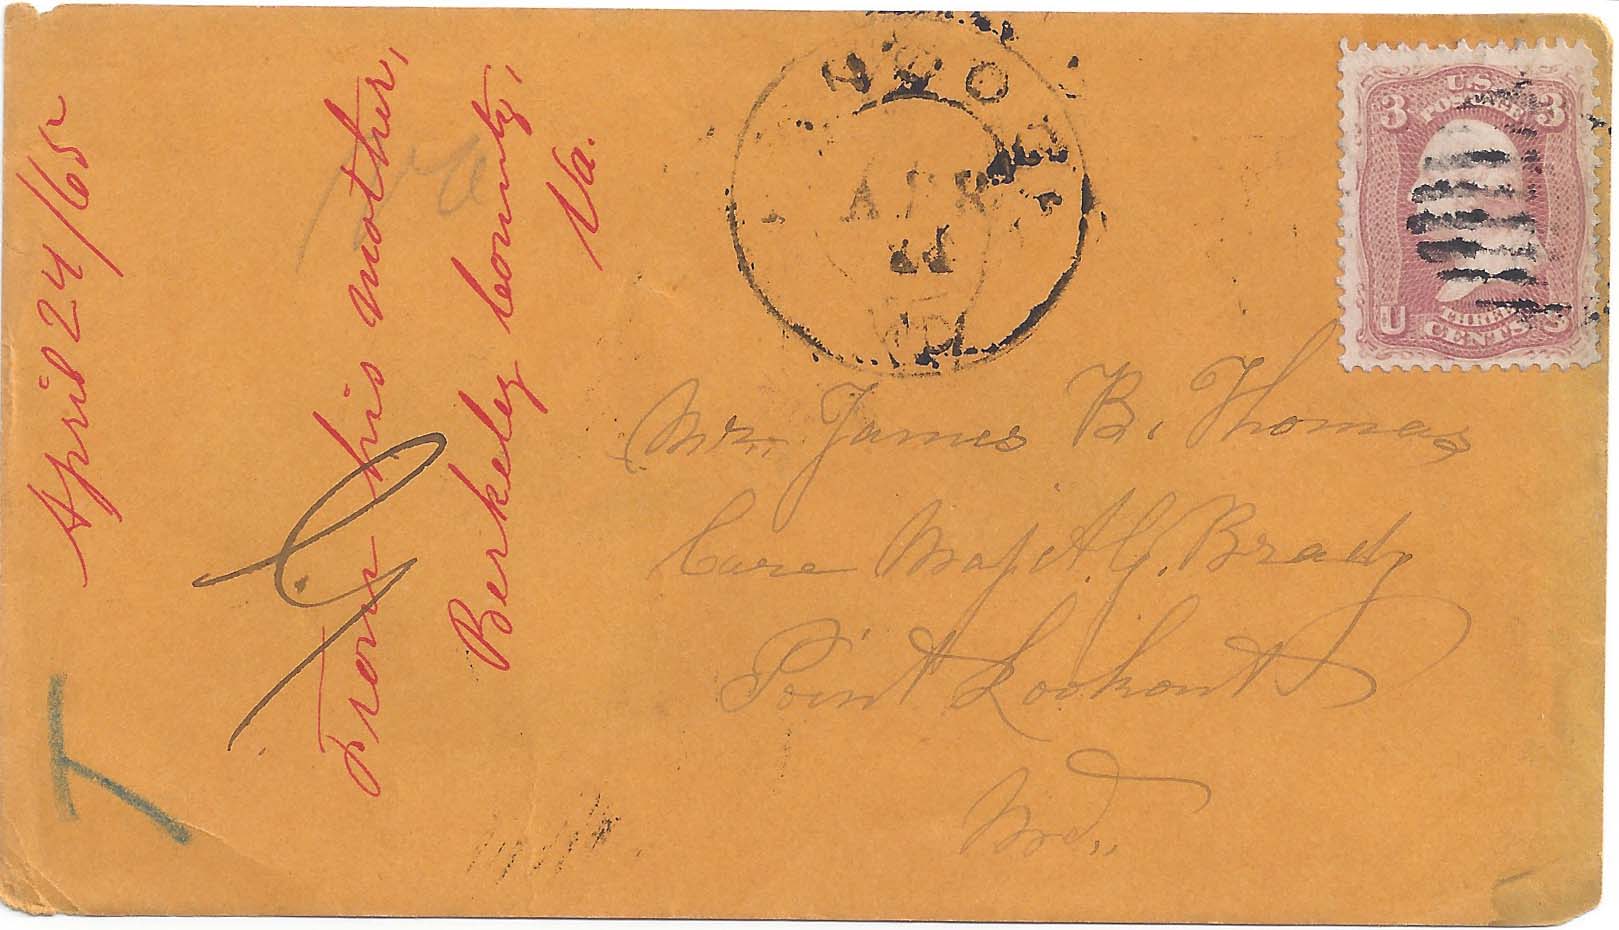 April 24/65
From his mother,
Berkeley County,
Va.
APR
MD
U.S.
POSTAGE
3 3
U S
THREE
CENTS
Mr. James B. Thomas
Care Maj A. G. Brady
Point Lookout
Md.